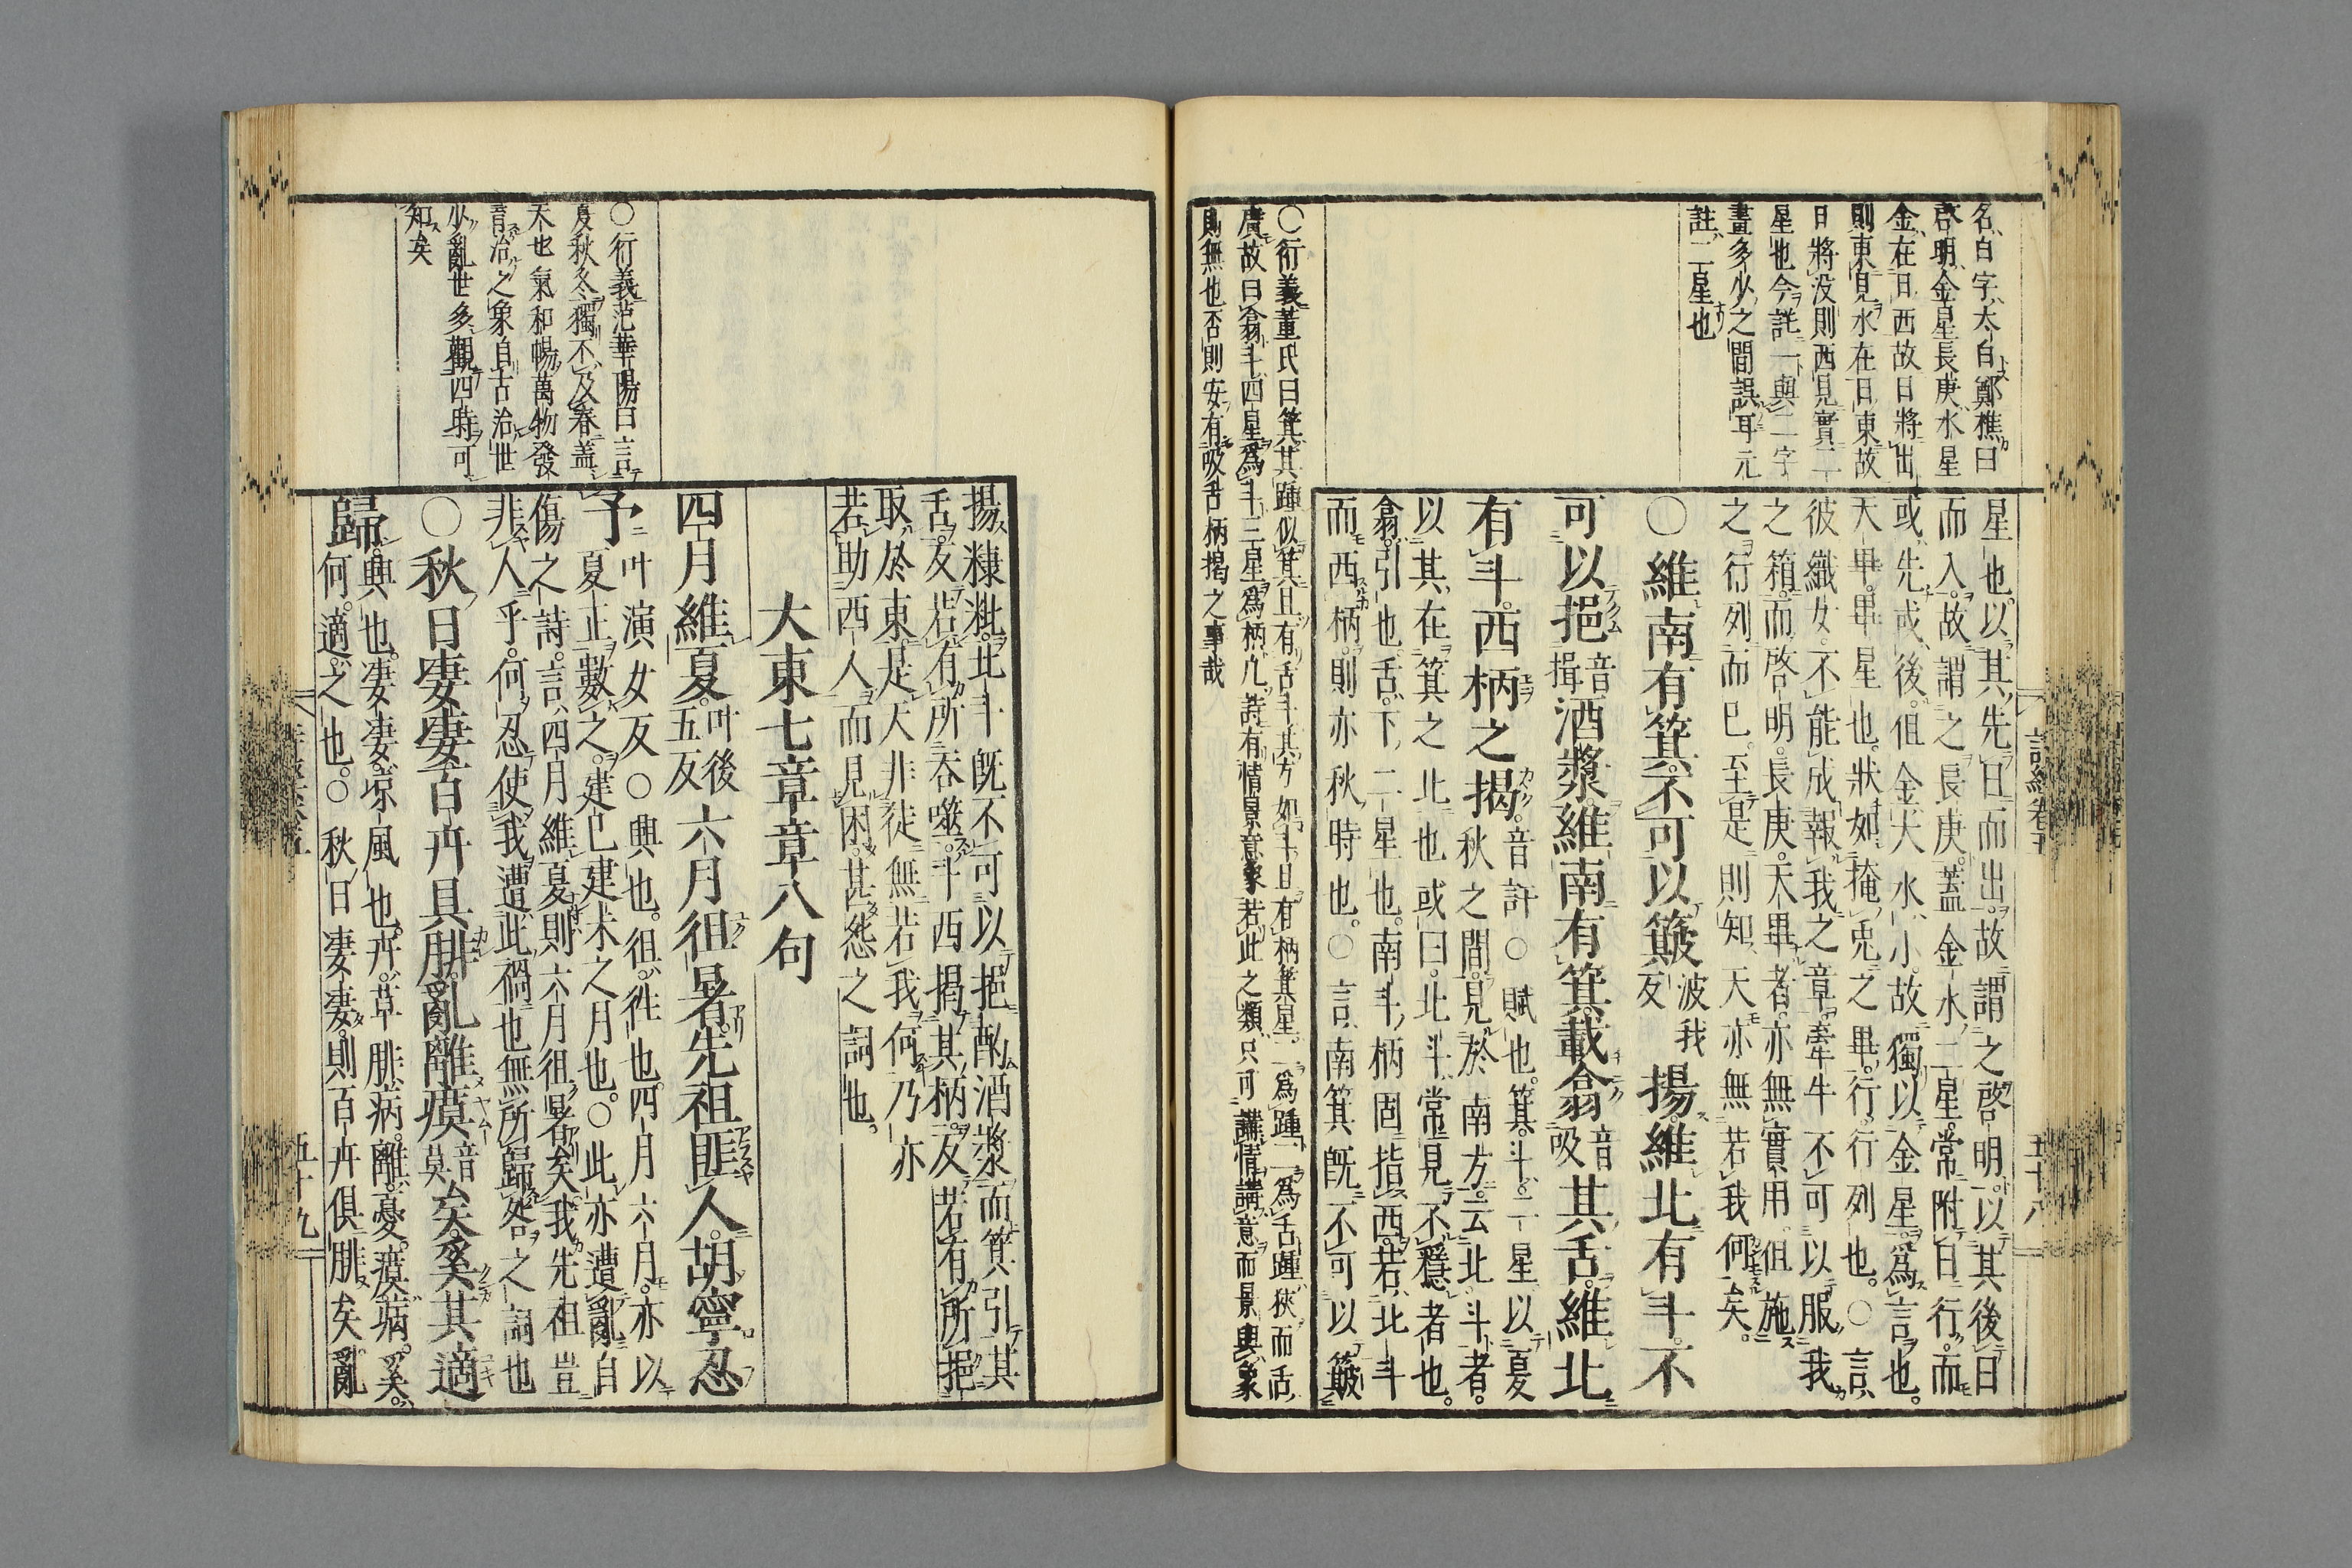 名白字太白鄭樵曰
啓明金星長庚水星
金在日西故日將出
則東見水在日東故
日將没則西見實二
星也今註一與二字
畫多少之間誤耳元
註二星也
星也以其先日而出故謂之啓明以其後日
而入故謂之長庚蓋金水二星常附日行而
或先或後但金大水小故獨以金星爲言也
天畢畢星也狀如掩兎之畢行行列也○言
彼織女不能成報我之章牽牛不可以服我
之箱而啓明長庚天畢者亦無實用但施
之行列而已至是則知天亦無若我何矣
○維南有箕不可以簸波我反揚維北有斗不
可以挹音揖酒漿維南有箕載翕音吸其舌維北
有斗西柄之揭音訐○賦也箕斗二星以夏
秋之間見於南方云北斗者
以其在箕之北也或曰北斗常見不隱者也
翕引也舌下二星也南斗柄固指西若北斗
而西柄則亦秋時也○言南箕既不可以簸
○衍義董氏曰箕其踵似箕且有舌斗其方如斗且有柄箕星二爲踵二爲舌踵狹而舌
廣故曰翕斗四星爲斗三星爲柄凡詩有情景意象若此之類只可講情講意而景與象
則無也否則安有吸舌柄揭之事哉
揚糠粃北斗既不可以挹酌酒漿而箕引其
舌反若有所吞噬斗西揭其柄反若有所挹
取於東是天非徒無若我何乃亦
若助西人而見困甚怨之詞也
大東七章章八句
四月維夏叶後五反六月徂暑先祖匪人胡寧忍
予叶演女反○興也徂往也四月六月亦以
夏正數之建巳建未之月也○此亦遭亂自
傷之詩言四月維夏則六月徂暑矣我先祖豈
非人乎何忍使我遭此禍也無所歸咎之詞也
○秋日凄凄百卉具腓亂離瘼音莫矣奚其適
歸興也凄凄凉風也卉草腓病離憂瘼病奚
何適之也○秋日凄凄則百卉俱腓矣亂
○衍義范華陽曰言
夏秋冬獨不及春蓋
天也氣和暢萬物發
育治之象自古治世
少亂世多觀四時可
知矣
詩經卷五
五十八
五十九